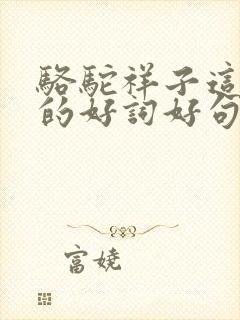 駱駝祥子這
的好詞好句
富娆